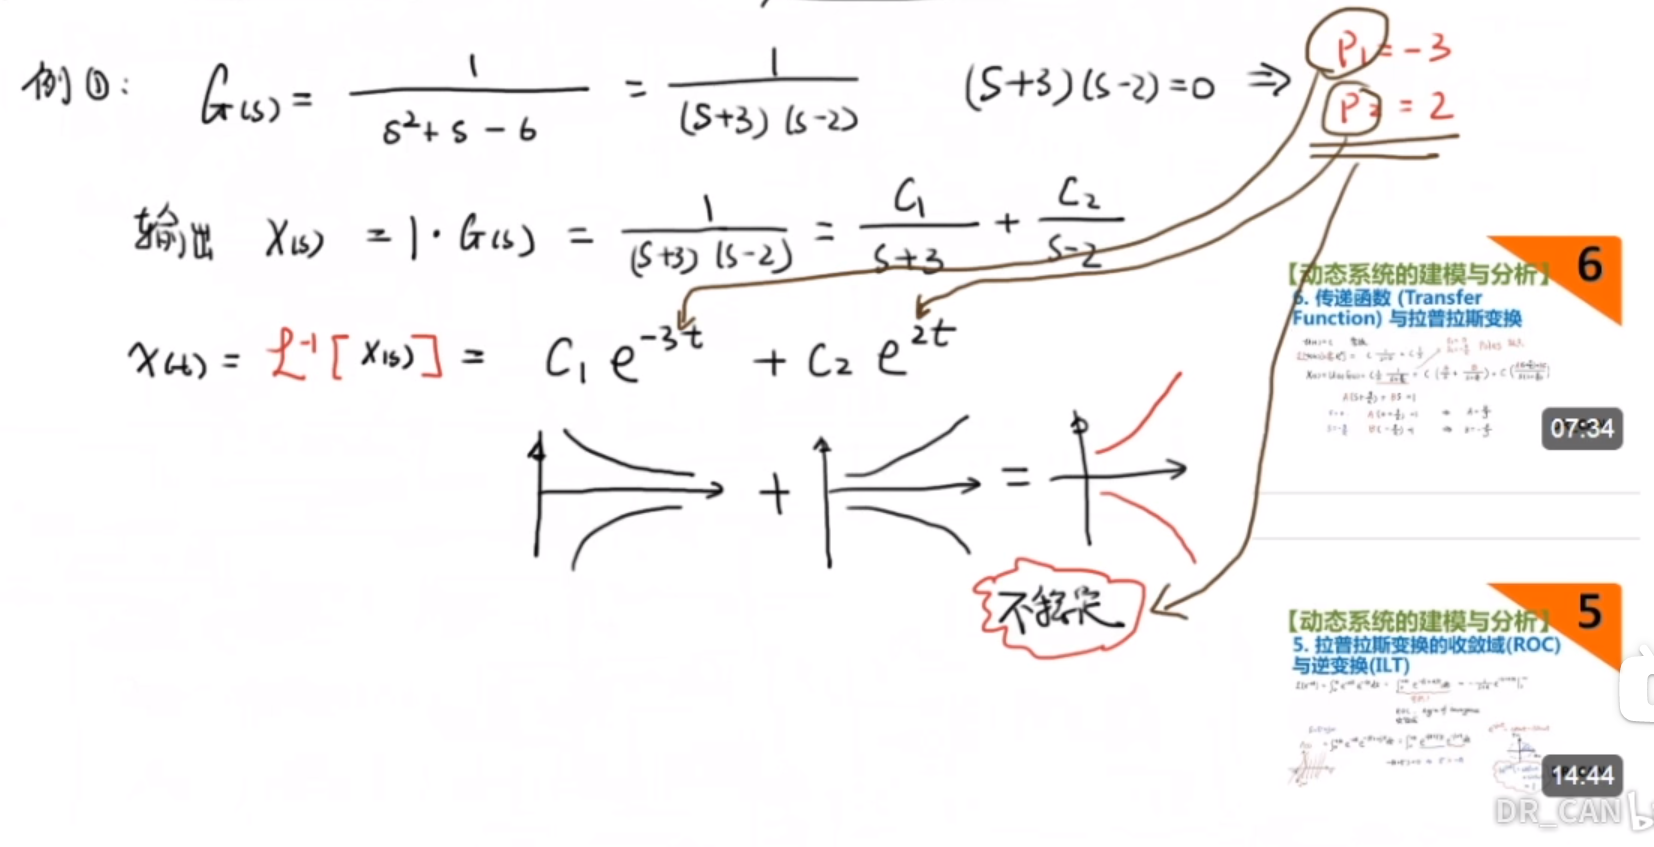 例①: G(s) = 1/(s²+s-6) = 1/((s+3)(s-2)) (s+3)(s-2)=0 ⇒ P₁ = -3
P₂ = 2
输出 X(s) = 1·G(s) = 1/((s+3)(s-2)) = C₁/(s+3) + C₂/(s-2)
x(t) = ℒ⁻¹[X(s)] = C₁e^(-3t) + C₂e^(2t)
+ =
不稳定
6
【动态系统的建模与分析】
6. 传递函数 (Transfer
Function) 与拉普拉斯变换
07:34
5
【动态系统的建模与分析】
5. 拉普拉斯变换的收敛域(ROC)
与逆变换(ILT)
14:44
DR_CAN